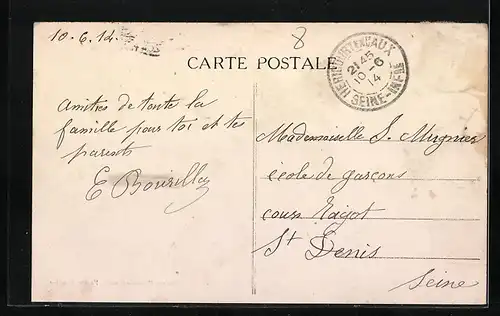 10.6.14.
8
CARTE POSTALE
HÉRICOURT-EN-CAUX
21 45
10-6
14
SEINE-INFRE
Amitiés de toute la
famille pour toi et tes
parents
E Bourilly
Mademoiselle S. Mugnier
école de garçons
cours Ragot
St Denis
Seine